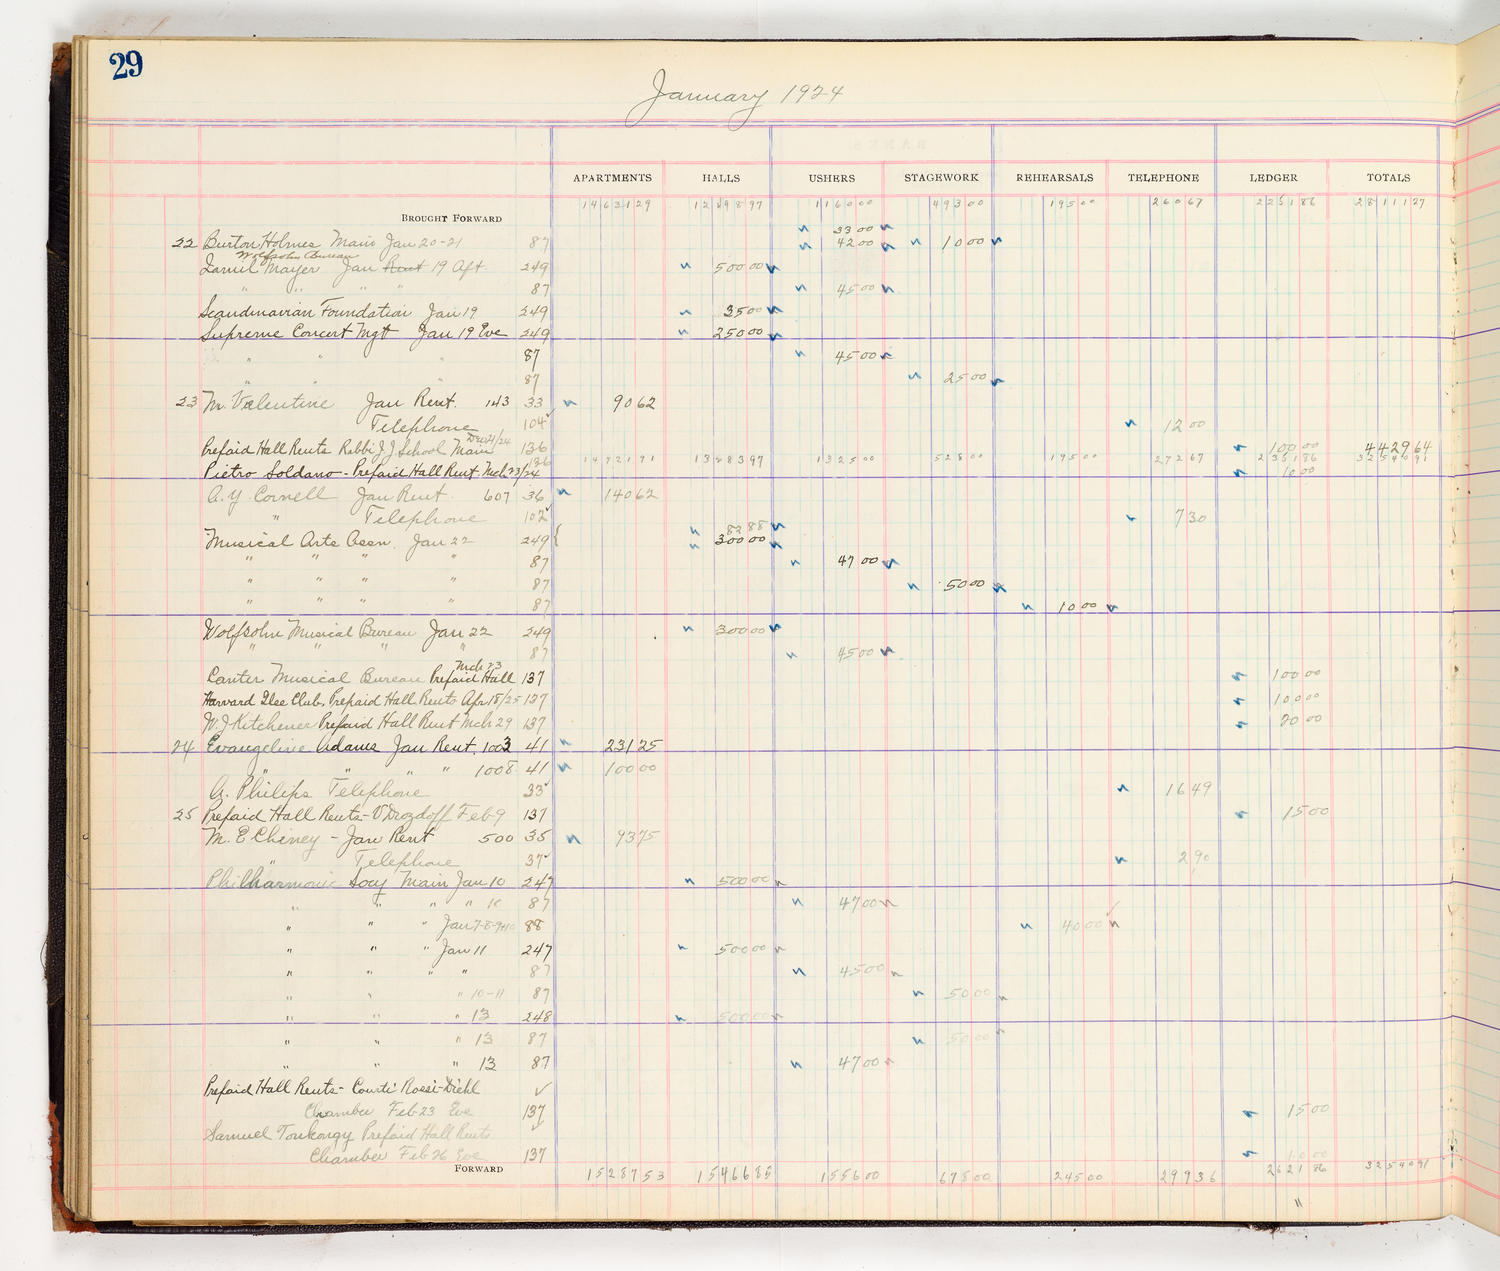 29
January 1924
APARTMENTS HALLS USHERS STAGEWORK REHEARSALS TELEPHONE LEDGER TOTALS
BROUGHT FORWARD 1463129 1289897 116000 49300 19500 26067 225186 2811127
33 00
22 Burton Holmes Main Jan 20-21 87 42 00 10 00
Wolfsohn Bureau
Daniel Mayer Jan Rent 19 Aft 249 500 00
" " " " 87 45 00
Scandinavian Foundation Jan 19 249 35 00
Supreme Concert Mgt Jan 19 Eve 249 250 00
" " " 87 45 00
" " " 87 25 00
23 M. Valentine Jan Rent. 143 33 90 62
Telephone 104 12 00
Prefaid Hall Rents Rabbi J J School Main Dec 21/24 136 100 00 4429 64
136 1472191 1368397 132500 52800 19500 27267 235186 3254091
Pietro Soldano - Prefaid Hall Rent Mch 23/24 10 00
A. Y. Cornell Jan Rent 607 36 140 62
" Telephone 102 7 30
82 88
Musical Arts Assn. Jan 22 249 { 300 00
" " " " 87 47 00
" " " " 87 50 00
" " " " 87 10 00
Wolfsohn Musical Bureau Jan 22 249 300 00
" " " " 87 45 00
Mch 23
Canter Musical Bureau Prefaid Hall 137 100 00
Harvard Glee Club, Prefaid Hall Rents Apr 18/25 137 100 00
W. J Kitchener Prefaid Hall Rent Mch 29 137 20 00
24 Evangeline Adams Jan Rent. 1003 41 231 25
" " " " 1008 41 100 00
A. Philips Telephone 33 16 49
25 Prefaid Hall Rents - V Drozdoff Feb 9 137 15 00
M. E Cheney - Jan Rent 500 35 93 75
" Telephone 37 2 90
Philharmonic Socy Main Jan 10 247 500 00
" " " " 10 87 47 00
" " " Jan 7-8-9+10 88 40 00
" " " Jan 11 247 500 00
" " " " 87 45 00
" " " 10-11 87 50 00
" " " 13 248 500 00
" " " 13 87 50 00
" " " 13 87 47 00
Prefaid Hall Rents - Courti Rossi-Diehl
Chamber Feb 23 Eve 137 15 00
Samuel Tonkongy Prefaid Hall Rents
Chamber Feb 26 Eve 137 10 00
FORWARD 1528753 1546685 155600 67800 24500 29936 262186 3254091
"